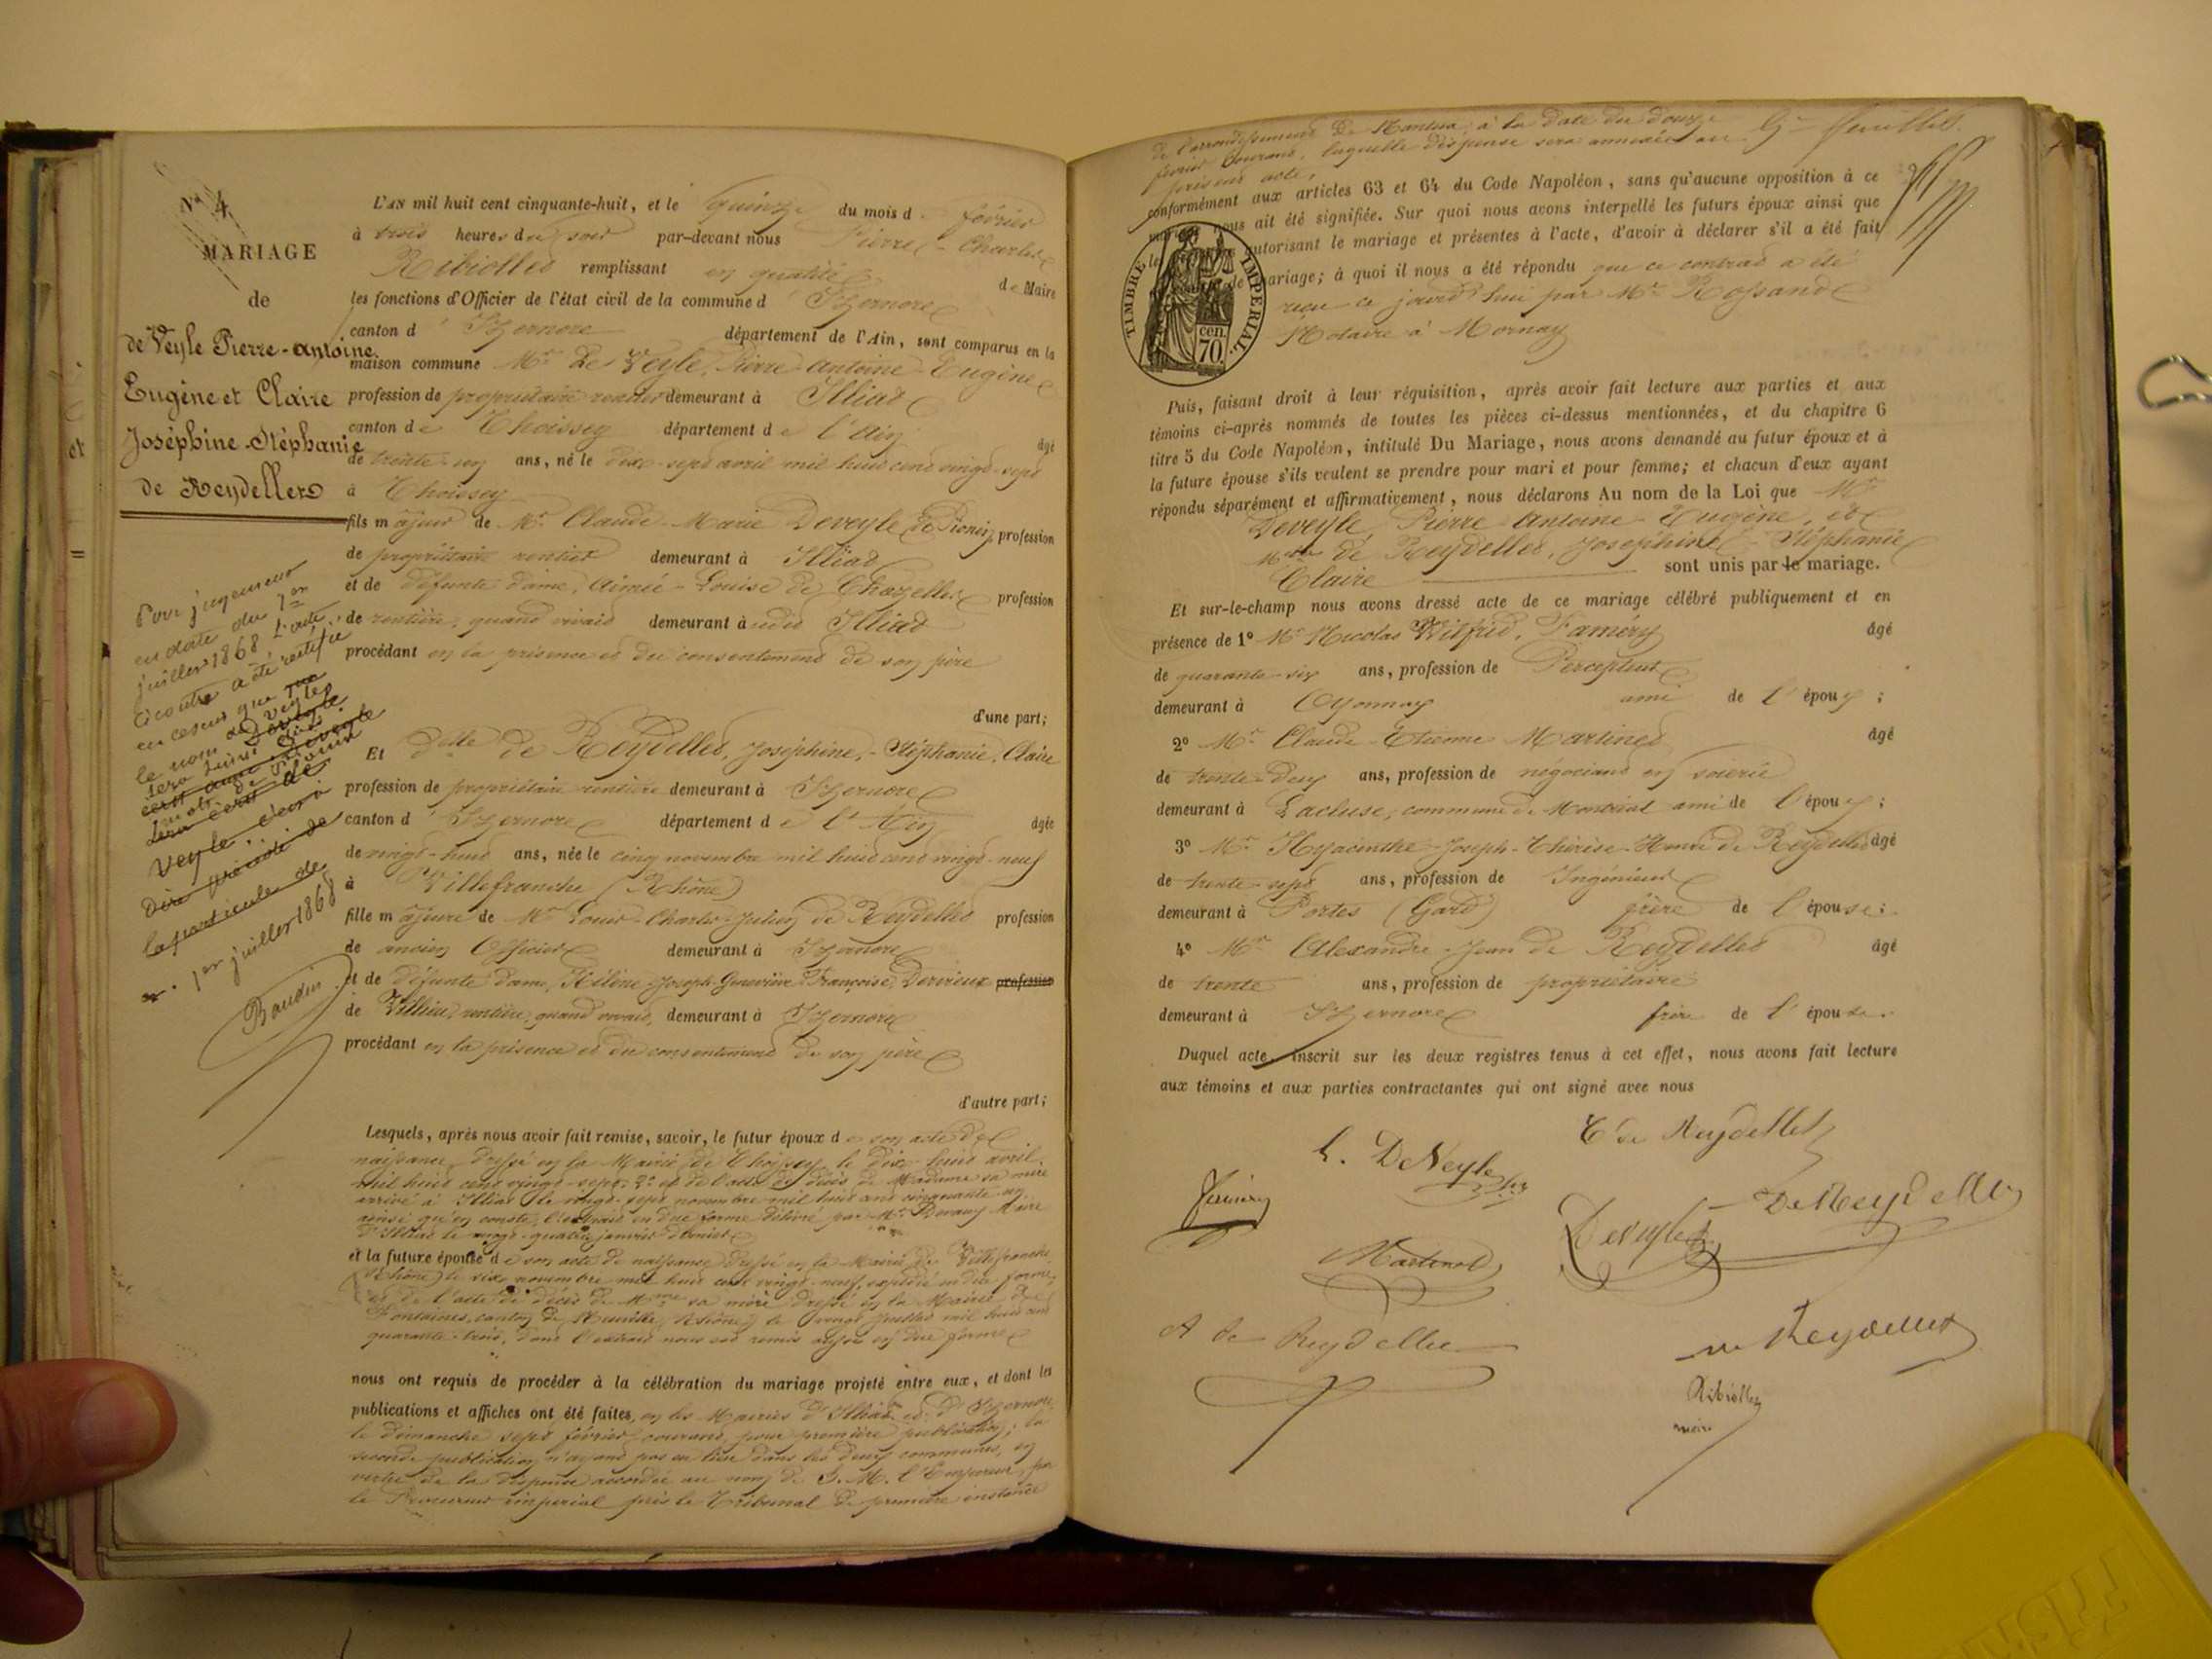 No 4
MARIAGE
de
de Veyle Pierre-antoine
Eugène et Claire
Joséphine-Stéphanie
de Reydellet
Pour jugement
en date du 1er
juillet 1868, l'acte
ci contre a été rectifié
en ce sens que
le nom de Veyle
sera
Veyle
dire précédé de
la particule de
1er juillet 1868
Baudin
L'AN mil huit cent cinquante-huit, et le quinze du mois de février
à trois heures du soir par-devant nous Pierre-Charles
Ribiollet remplissant en qualité de Maire
les fonctions d'Officier de l'état civil de la commune d'Izernore
canton d'Izernore département de l'Ain, sont comparus en la
maison commune Mr. de Veyle, Pierre antoine Eugène
profession de propriétaire rentier demeurant à Illiat
canton de Thoissey département de l'Ain âgé
de trente-un ans, né le dix-sept avril mil huit cent vingt-sept
à Thoissey
fils majeur de Mr. Claude-Marie Deveyle de profession
de propriétaire rentier demeurant à Illiat
et de défunte dame, Aimée-Louise de Chazelles profession
de rentière, quand vivait demeurant à Illiat
procédant en la présence et du consentement de son père
d'une part;
Et Delle de Reydellet, Joséphine,-Stéphanie, Claire
profession de propriétaire rentière demeurant à Izernore
canton d'Izernore département de l'Ain âgée
de vingt-huit ans, née le cinq novembre mil huit cent vingt-neuf
à Villefranche (Rhône)
fille majeure de Mr Louis-Charles-Julien de Reydellet profession
de ancien Officier demeurant à Izernore
et de défunte dame, Hélène Joseph Geneviève Françoise, Dervieux profession
de Villieu, rentière, quand vivait, demeurant à Izernore
procédant en la présence et du consentement de son père
d'autre part;
Lesquels, après nous avoir fait remise, savoir, le futur époux de son acte de
naissance, dressé en la Mairie de Thoissey le dix-huit avril
mil huit cent vingt-sept; 2o et de l'acte de décès de Madame sa mère
arrivé à Illiat le vingt-sept novembre mil huit cent cinquante-un
ainsi qu'en conste, l'extrait en due forme délivré par Mr. Maire
d'Illiat le vingt-quatre janvier dernier
et la future épouse de son acte de naissance dressé en la Mairie de Villefranche
(Rhône) le six novembre mil huit cent vingt-neuf, expédié en due forme,
et de l'acte de décès de Mme sa mère dressé en la Mairie de
Fontaines, canton de Neuville, (Rhône) le juillet mil huit cent
quarante-trois, dont l'extrait nous est remis aussi en due forme
nous ont requis de procéder à la célébration du mariage projeté entre eux, et dont les
publications et affiches ont été faites, en les Mairies d'Illiat et d'Izernore
le dimanche sept février courant, pour première publication; la
seconde publication n'ayant pas eu lieu dans les deux communes, en
vertu de la dispense accordée au nom de S. M. l'Empereur, par
le Procureur impérial près le Tribunal de première instance
de l'arrondissement de Nantua, à la date du douze
février courant, laquelle dispense sera annexée au
présent acte,
9e feuillet.
conformément aux articles 63 et 64 du Code Napoléon, sans qu'aucune opposition à ce
mariage nous ait été signifiée. Sur quoi nous avons interpellé les futurs époux ainsi que
les autorisant le mariage et présentes à l'acte, d'avoir à déclarer s'il a été fait
de mariage; à quoi il nous a été répondu que ce contrat a été
reçu ce jourd'hui par Me Rossand
Notaire à Mornay
TIMBRE IMPERIAL
70 cen.
Puis, faisant droit à leur réquisition, après avoir fait lecture aux parties et aux
témoins ci-après nommés de toutes les pièces ci-dessus mentionnées, et du chapitre 6
titre 5 du Code Napoléon, intitulé Du Mariage, nous avons demandé au futur époux et à
la future épouse s'ils veulent se prendre pour mari et pour femme; et chacun d'eux ayant
répondu séparément et affirmativement, nous déclarons Au nom de la Loi que Mr
Deveyle, Pierre antoine-Eugène, et
de Reydellet, Joséphine-Stéphanie
Claire sont unis par le mariage.
Et sur-le-champ nous avons dressé acte de ce mariage célébré publiquement et en
présence de 1o Mr Nicolas Wilfrid, Faméry âgé
de quarante-six ans, profession de Percepteur
demeurant à Oyonnax ami de l'époux;
2o Mr. Claude-Etienne Martinet âgé
de trente-deux ans, profession de négociant en soierie
demeurant à Lacluse, commune de Montréal ami de l'époux;
3o Mr. Hyacinthe-Joseph-Thérèse-Henri de Reydellet âgé
de trente-sept ans, profession de Ingénieur
demeurant à Portes (Gard) frère de l'épouse;
4o Mr Alexandre-Jean de Reydellet âgé
de trente ans, profession de propriétaire
demeurant à Izernore frère de l'épouse.
Duquel acte, inscrit sur les deux registres tenus à cet effet, nous avons fait lecture
aux témoins et aux parties contractantes qui ont signé avec nous
C de Reydellet
DeVeyle fils
Faméry
DeReydellet
Deveyle
Martinet
A de Reydellet
Reydellet
Ribiollet
maire